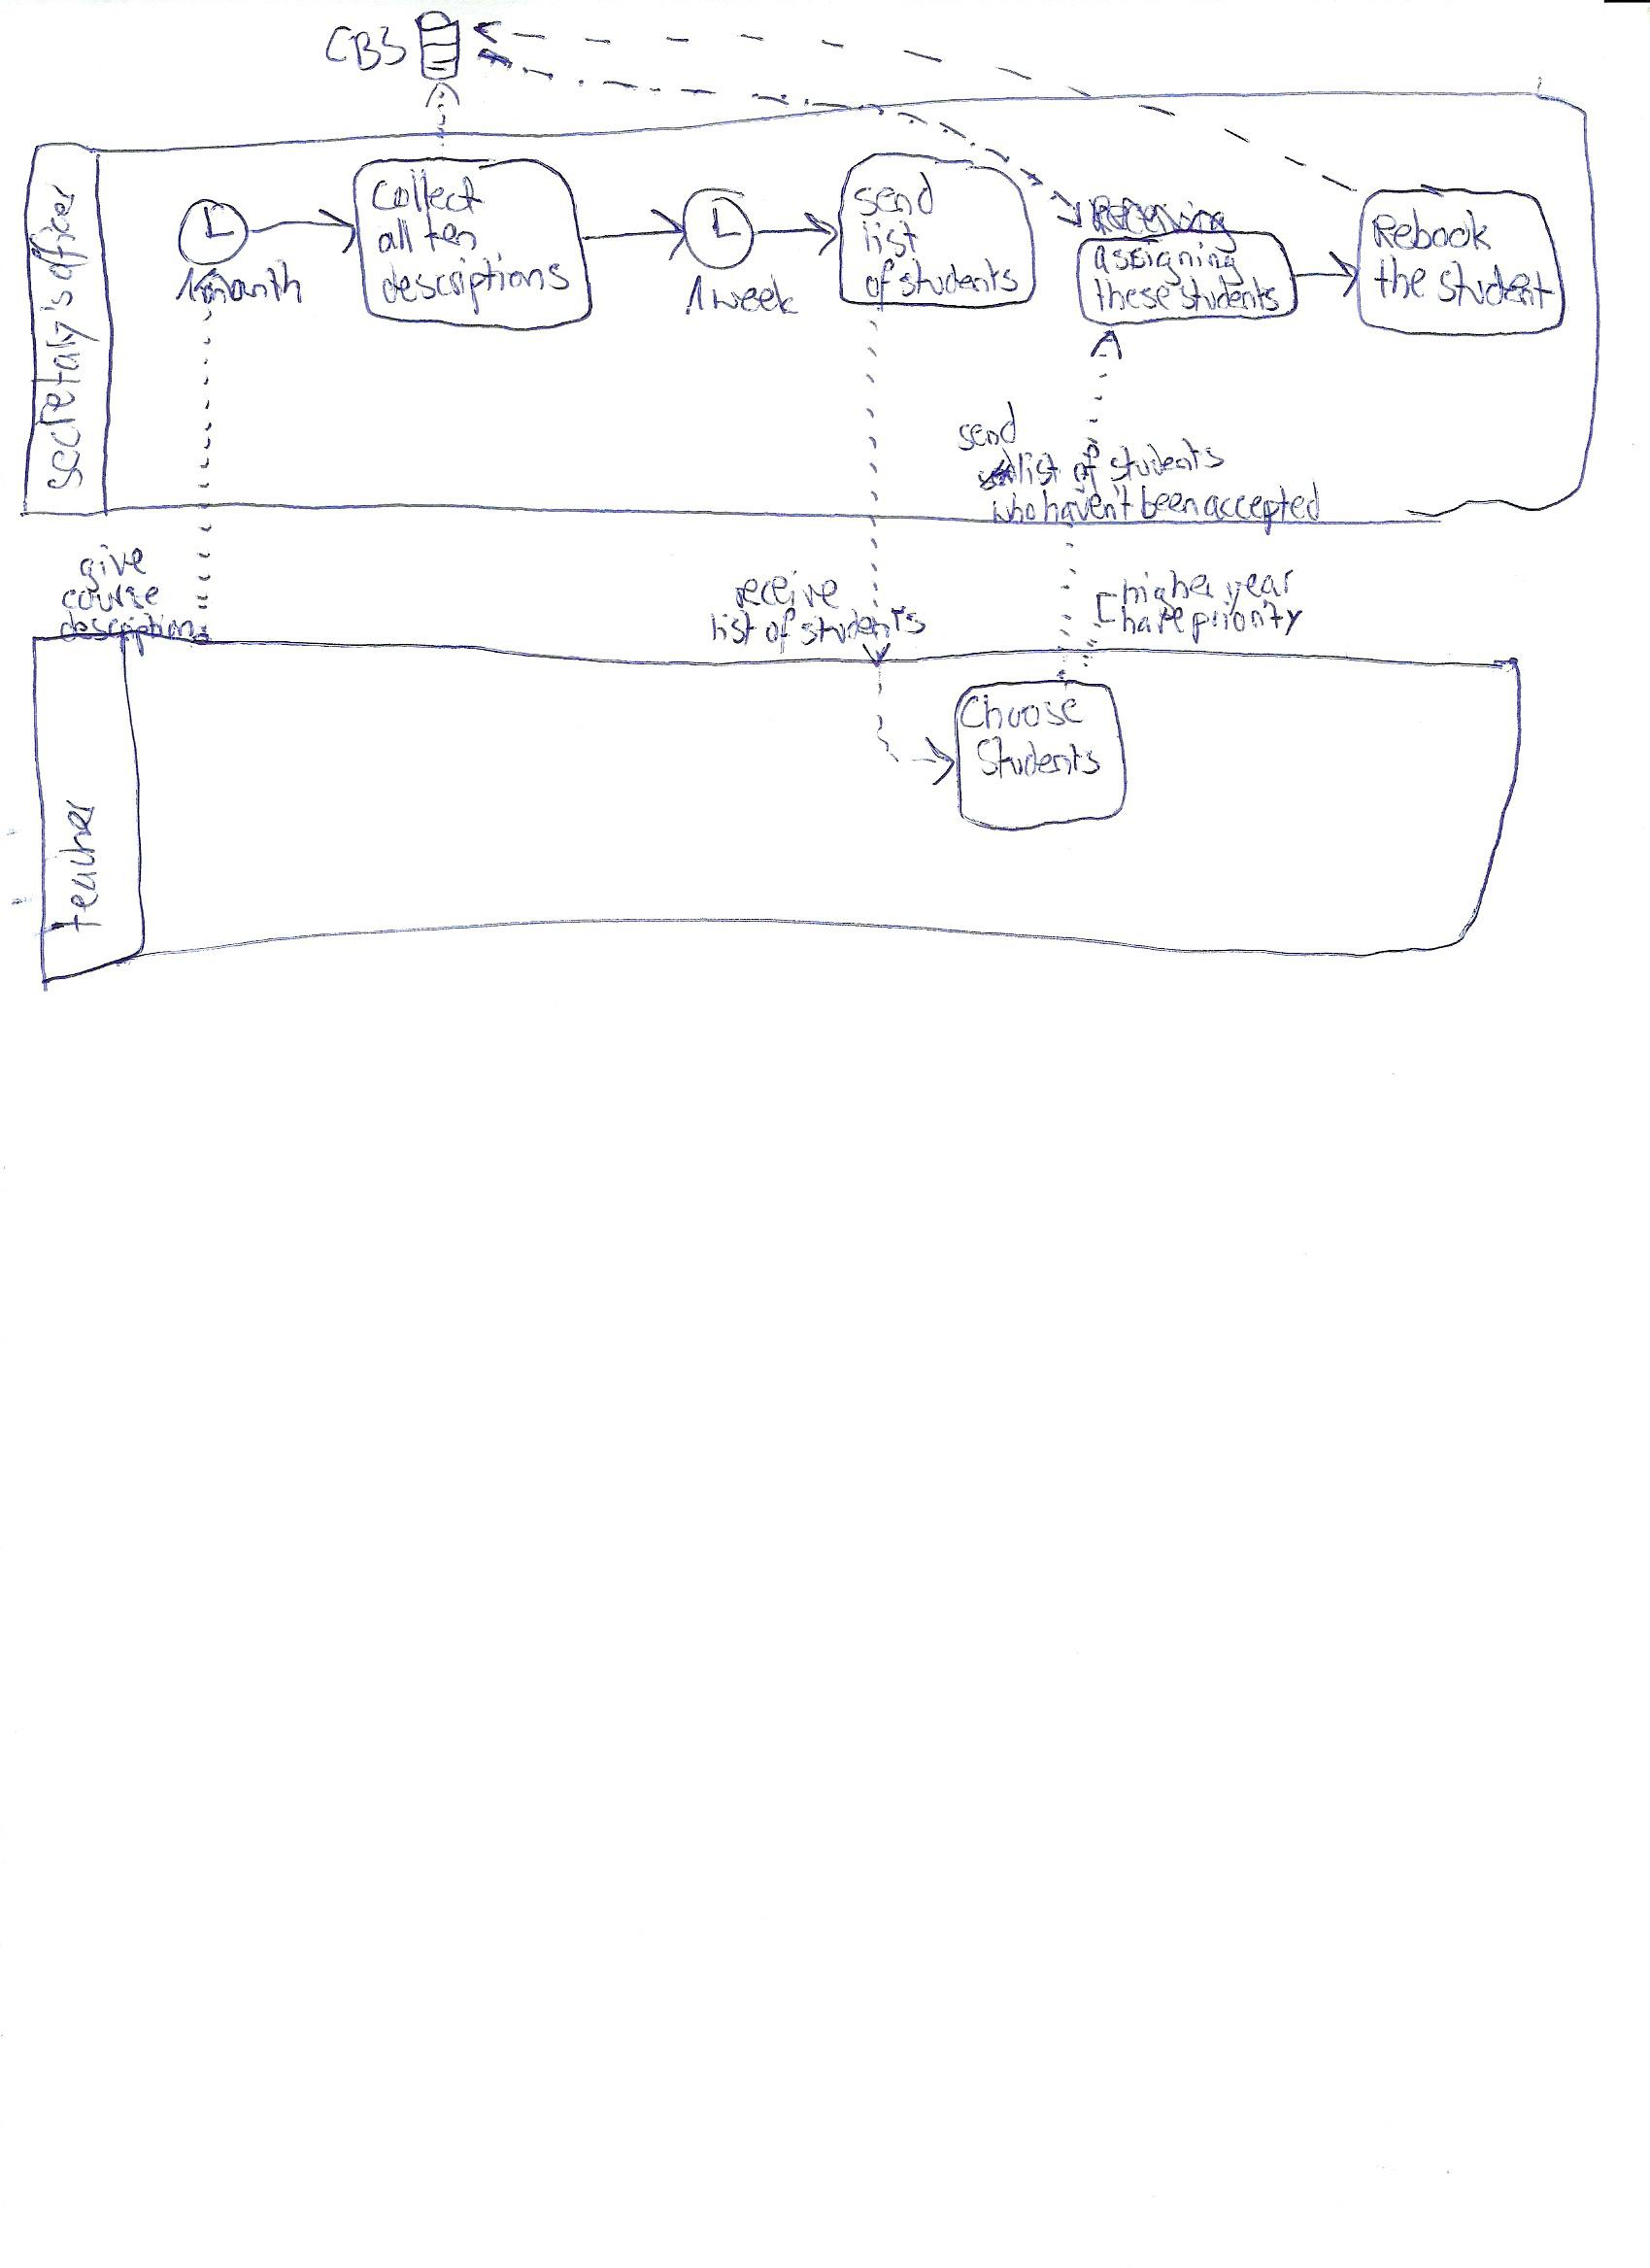 CBS
secretary's officer
1 month
collect
all ten
descriptions
1 week
send
list
of students
receiving
assigning
these students
Rebook
the student
send
list of students
who haven't been accepted
give
course
descriptions
receive
list of students
higher year
have priority
teacher
Choose
Students